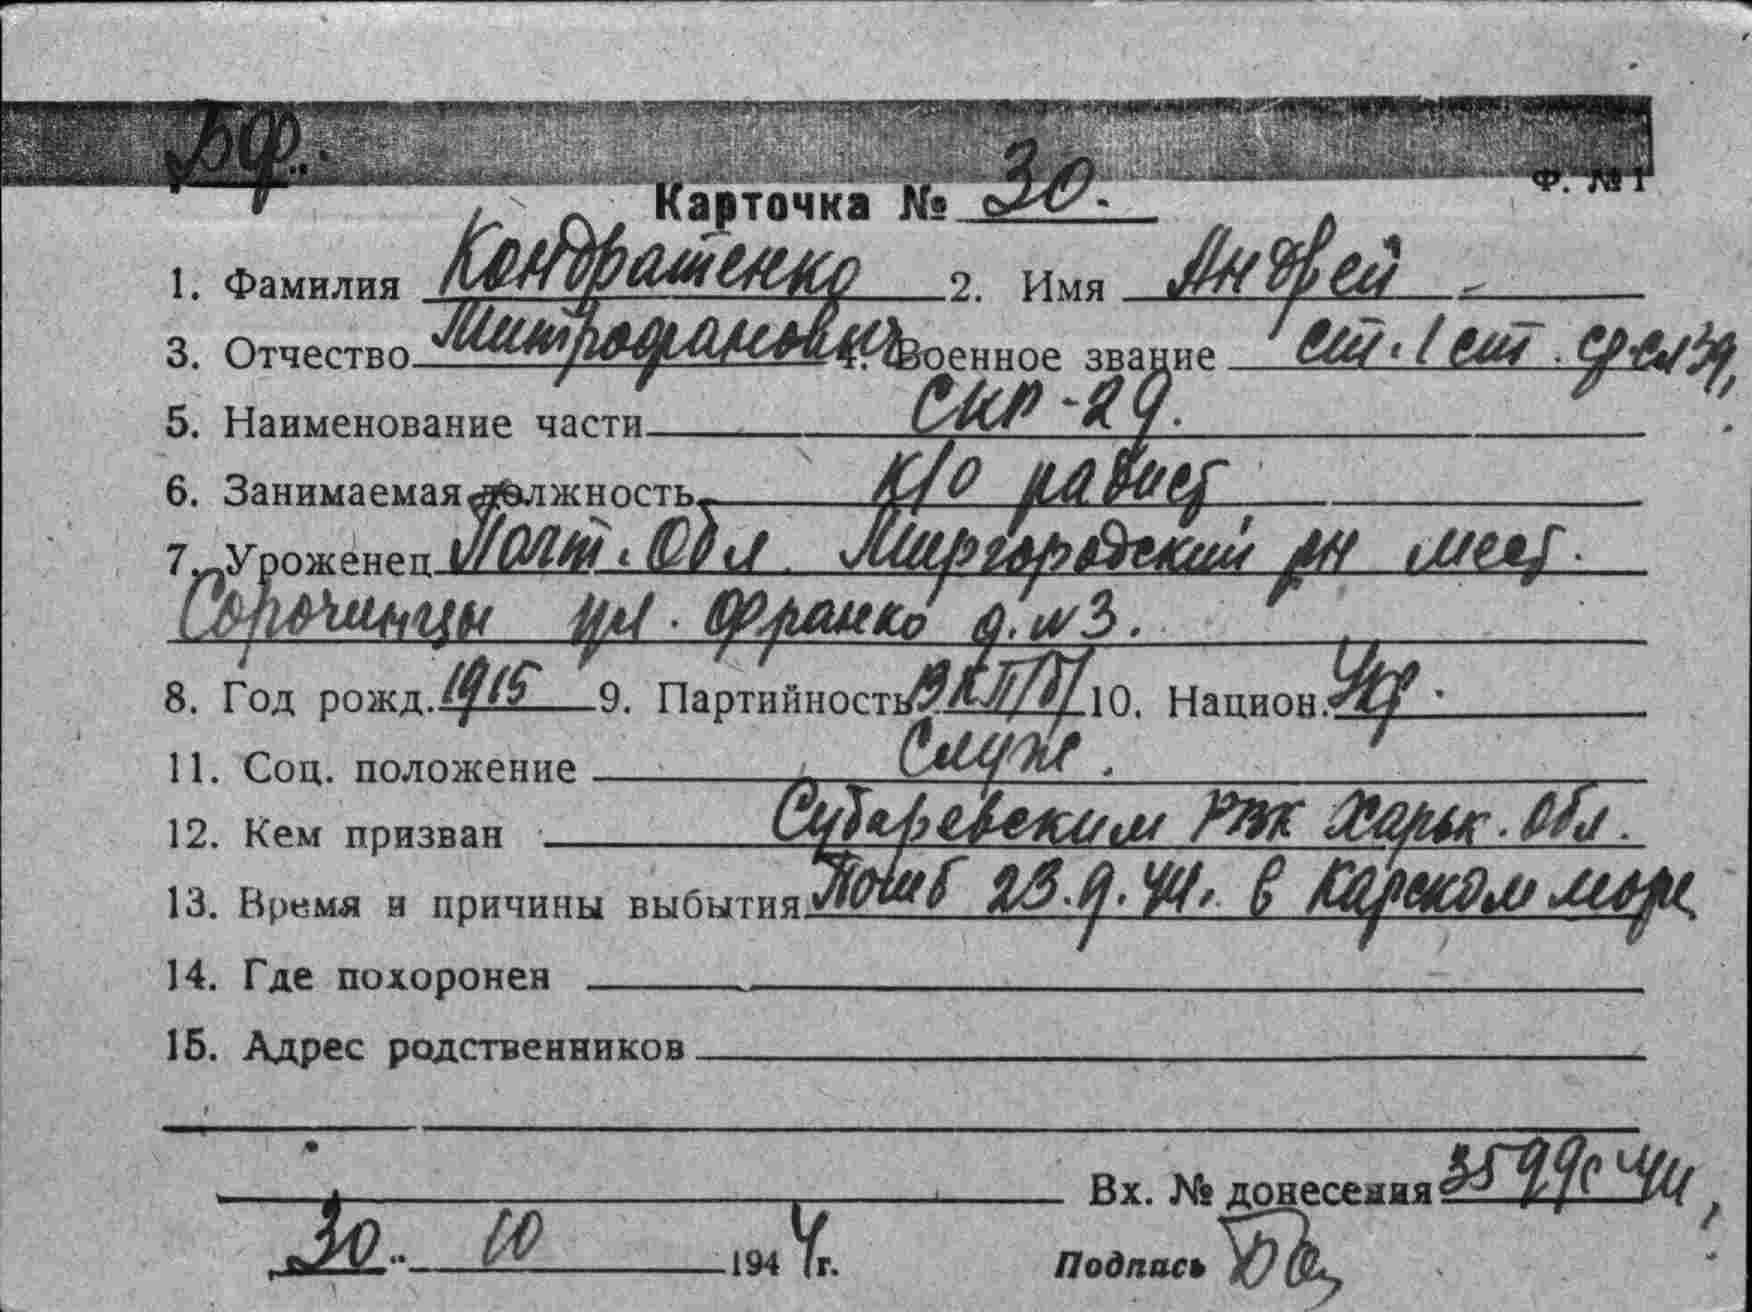 БФ.
Ф. № 1
Карточка № 30.
1. Фамилия Кондратенко 2. Имя Андрей
3. Отчество Митрофанович 4. Военное звание ст. 1 ст. ср. сл
5. Наименование части СКР-29.
6. Занимаемая должность к/о радист
7. Уроженец Полт. Обл. Миргородский рн мест.
Сорочинцы ул. Франко д. № 3.
8. Год рожд. 1915 9. Партийность ВКП/б/ 10. Национ. Укр.
11. Соц. положение Служ.
12. Кем призван РВК Харьк. Обл.
13. Время и причины выбытия Погиб 23.9.44г. в Карском море
14. Где похоронен
15. Адрес родственников
Вх. № донесения 3599с 44
30. 10 1944г. Подпись